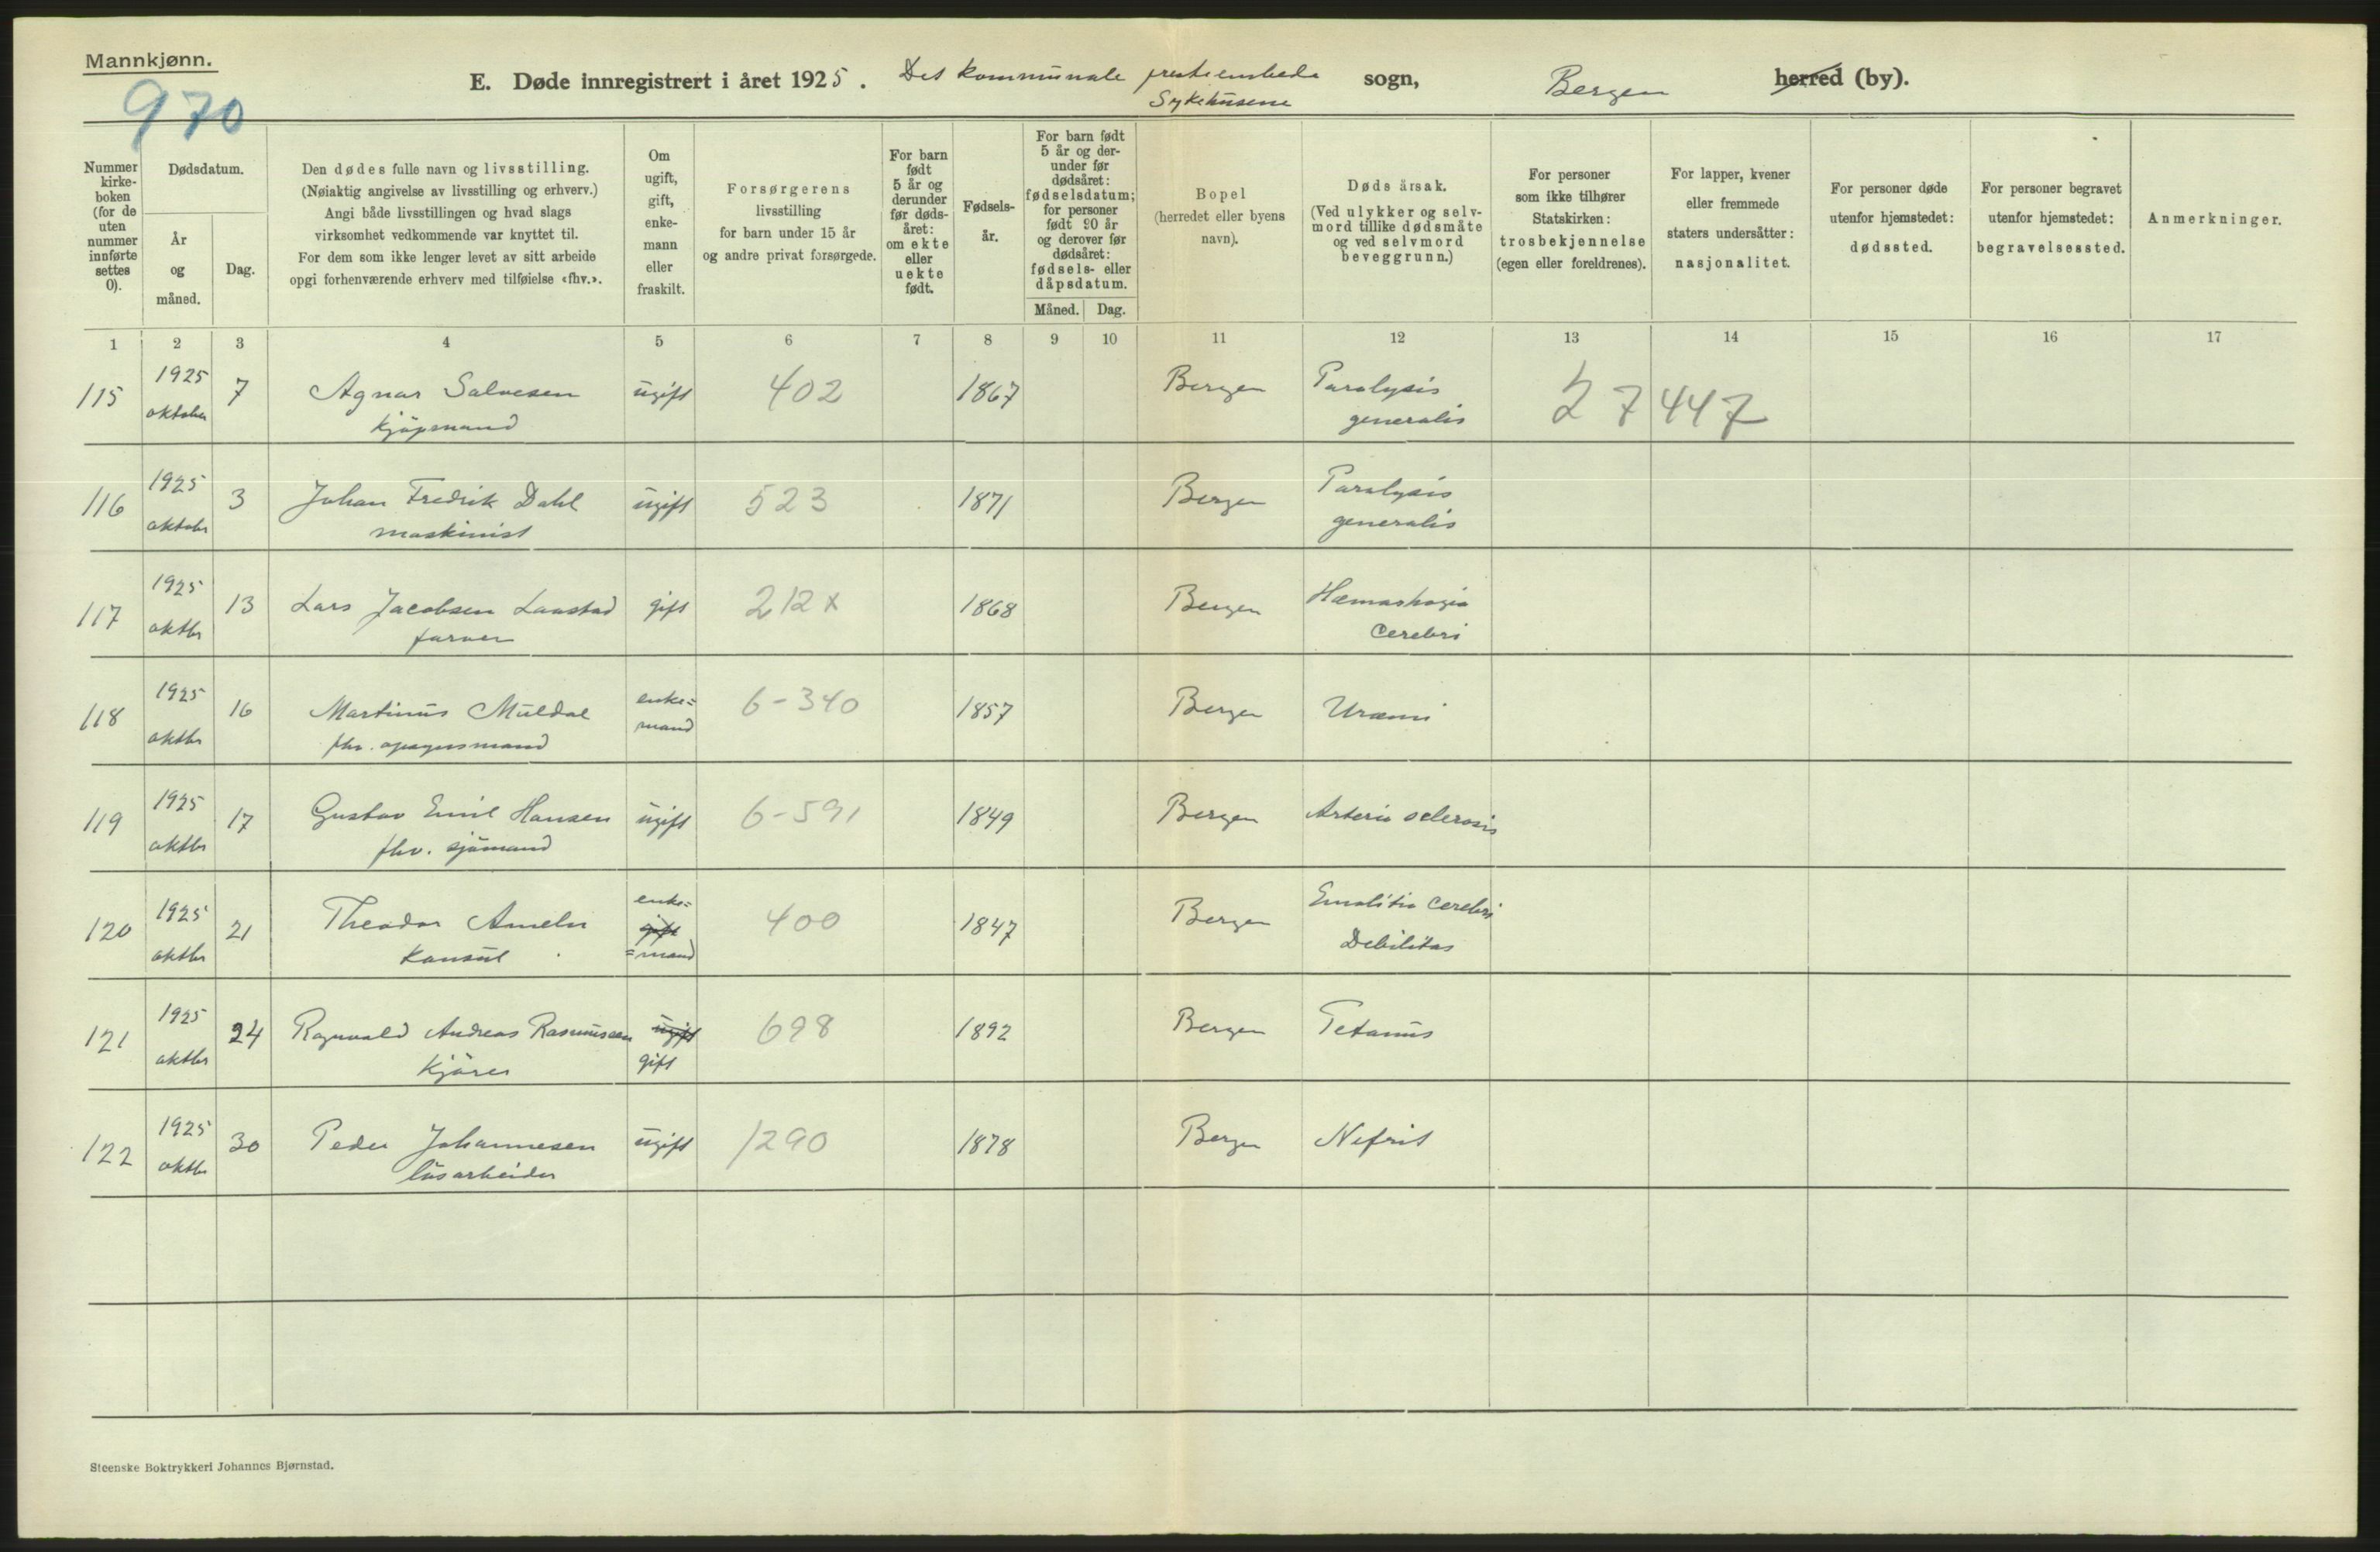 Mannkjønn.
970
E. Døde innregistrert i året 1925. Det kommunale presteembede sogn, Bergen herred (by).
Sykehusene
Nummer kirke-boken (for de uten nummer innførte settes 0).
Dødsdatum.
År og måned.
Dag.
Den dødes fulle navn og livsstilling.
(Nøiaktig angivelse av livsstilling og erhverv.)
Angi både livsstillingen og hvad slags
virksomhet vedkommende var knyttet til.
For dem som ikke lenger levet av sitt arbeide
opgi forhenværende erhverv med tilføielse «fhv.».
Om ugift, gift, enke-mann eller fraskilt.
Forsørgerens
livsstilling
for barn under 15 år
og andre privat forsørgede.
For barn født 5 år og derunder før døds-året: om ekte eller uekte født.
Fødsels-år.
For barn født 5 år og der-under før dødsåret: fødselsdatum; for personer født 90 år og derover før dødsåret: fødsels- eller dåpsdatum.
Måned. Dag.
Bopel
(herredet eller byens
navn).
Døds årsak.
(Ved ulykker og selv-
mord tillike dødsmåte
og ved selvmord
beveggrunn.)
For personer
som ikke tilhører
Statskirken:
trosbekjennelse
(egen eller foreldrenes).
For lapper, kvener
eller fremmede
staters undersåtter:
nasjonalitet.
For personer døde
utenfor hjemstedet:
dødssted.
For personer begravet
utenfor hjemstedet:
begravelsessted.
Anmerkninger.
1 2 3 4 5 6 7 8 9 10 11 12 13 14 15 16 17
115 1925 7 Agnar Salvesen ugift 402 1867 Bergen Paralysis 27447
oktober kjöpmand generalis
116 1925 3 Johan Fredrik Dahl ugift 523 1871 Bergen Paralysis
oktobr maskinist generalis
117 1925 13 Lars Jacobsen Laastad gift 212x 1868 Bergen
oktbr farver Cerebri
118 1925 16 Martinus Muldal enke= 6-340 1857 Bergen Uræmi
oktbr fhv. mand
119 1925 17 Gustav Emil Hansen ugift 6-591 1849 Bergen Arterio sclerosis
oktbr fhv. sjömand
120 1925 21 Theodor enke= gift =mand 400 1847 Bergen Cerebri
oktbr Konsul Debilitas
121 1925 24 Ragnvald Andreas Rasmussen ugift 698 1892 Bergen Tetanus
oktbr Kjörer gift
122 1925 30 Peder Johannesen ugift 1290 1878 Bergen Nefrit
oktbr lösarbeider
Steenske Boktrykkeri Johannes Bjørnstad.